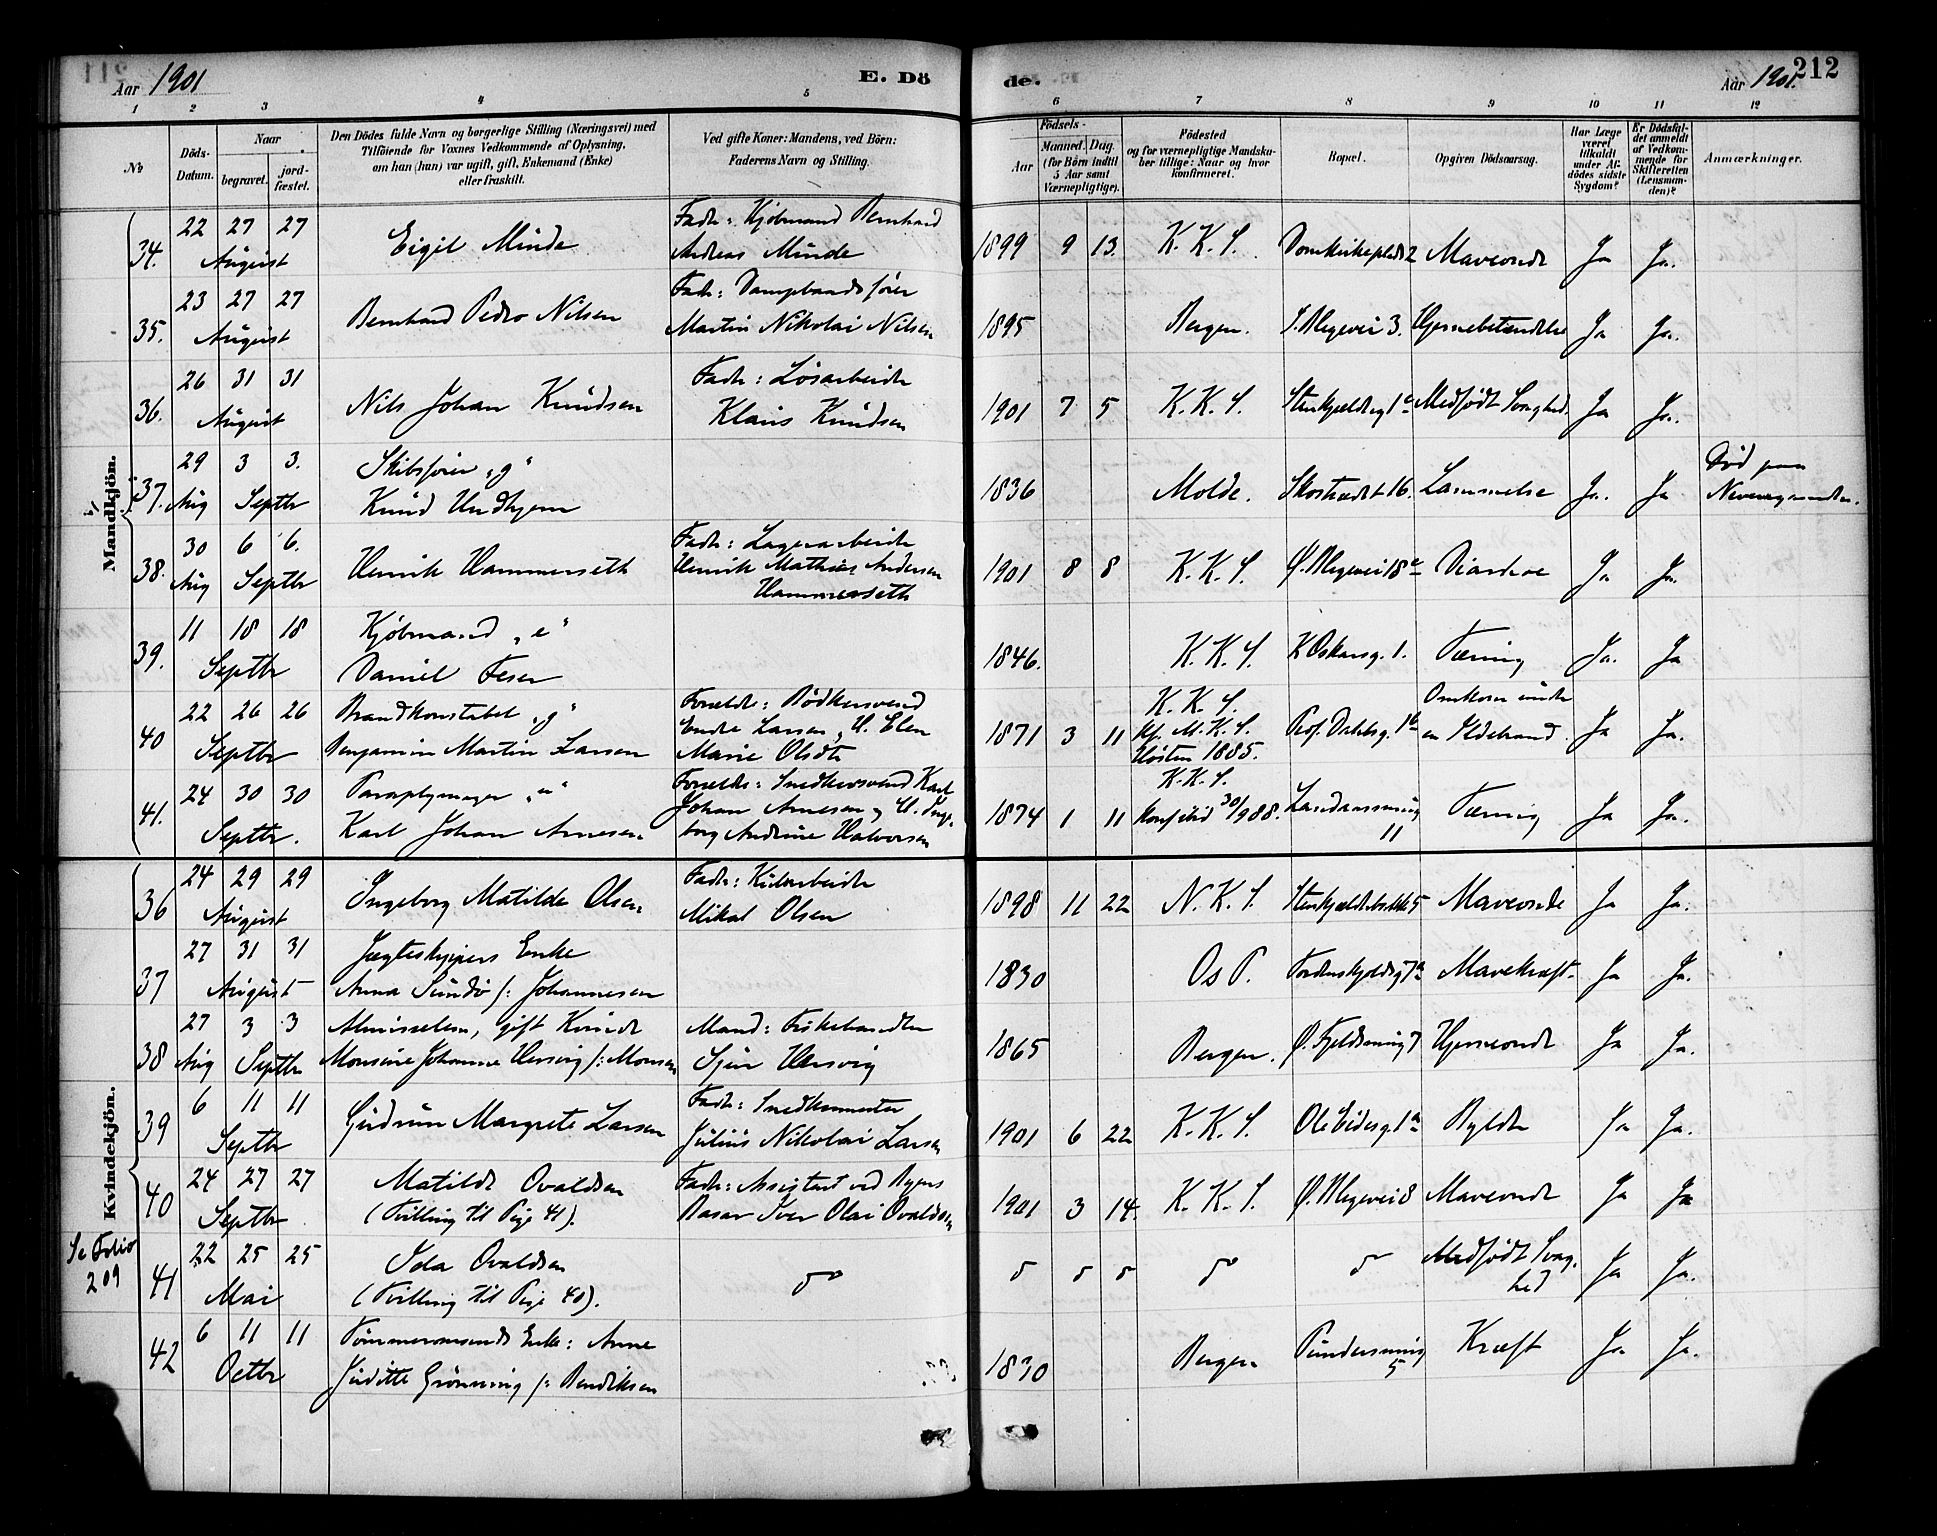 Aar 1901
E. Dö
de.
Aar 1901.
212
1 2 3 4 5 6 7 8 9 10 11 12
№
Döds-Datum.
Naar
begravet.
jord-fæstet.
Den Dödes fulde Navn og borgerlige Stilling (Næringsvei) med
Tilföiende for Voxnes Vedkommende af Oplysning,
om han (hun) var ugift, gift, Enkemand (Enke)
eller fraskilt.
Ved gifte Koner: Mandens, ved Börn:
Faderens Navn og Stilling.
Födsels-
Aar
Maaned.
Dag.
(for Börn indtil
5 Aar samt
Værnepligtige).
Födested
og for værnepligtige Mandska-
ber tillige: Naar og hvor
konfirmeret.
Bopæl.
Opgiven Dödsaarsag.
Har Læge
været
tilkaldt
under Af-
dödes sidste
Sygdom?
Er Dödsfal-
det anmeldt
af Vedkom-
mende for
Skifteretten
(Lensman-
den)?
Anmærkninger.
Mandkjön.
34. 22 27 27 August
Eigil Minde
Fader: Kjøbmand Bernhard
Andreas Minde
1899 9 13. K. K. S. Domkirkeplads 2 Maveondt Ja Ja.
35. 23 27 27 August
Bernhard Pedro Nilsen
Martin Nikolai Nilsen
1895 Bergen. Hjernebetændelse Ja Ja.
36. 26 31 31 August
Nils Johan Knudsen
Fader: Løsarbeider
Klaus Knudsen
1901 7 5 K. K. S. Medfødt Svaghed. Ja Ja.
37. 29 3 3. Aug Septbr
Skibsfører "g"
Knud Undhjem
1836 Molde. Skostrædet 16. Lammelse Ja. Ja
Död paa
38. 30 6 6. Aug Septbr
Henrik Hammerseth
Fader: Lagerarbeider
Henrik Mathias Andersen
Hammerseth
1901 8 8 K. K. S. Diarrhoe Ja Ja.
39. 11 18 18 Septbr
Kjøbmand "e"
Daniel Feser
1846. K. K. S. K Oskarsg. 1. Tæring Ja. Ja
40 22 26 26 Septbr
Brandkonstabel "g"
Benjamin Martin Larsen
Forældre: Bødkersvend
Endre Larsen, H. Elen
Marie Olsdtr
1871 3 11 K. K. S.
Kf. M. K. S.
Høsten 1885.
Prof. Dahlsg. 1b
Omkom under
en Ildebrand. Ja Ja.
41. 24 30 30 Septbr.
Paraplymager "u"
Karl Johan Arnesen
Forældre: Snedkersvend Karl
Johan Arnesen, H. Inge-
borg Andrine Halvorsen
1874 1 11 K. K. S.
30/9 88.
11
Tæring Ja Ja.
Kvindekjön.
36 24 29 29 August
Ingeborg Matilde Olsen
Fader: Kularbeider
Mikal Olsen
1898 11 22 N. K. S. Maveonde Ja Ja.
37 27 31 31 August
Jægteskippers Enke
Anna Sundö f: Johannesen
1830 Os P. Tordenskjoldsg 7a Mavekræft. Ja Ja.
38 27 3 3 Aug Septbr
gift Kvinde
Monsine Johanne Hersvig f: Monsen
Mand: Fiskehandler
Sjur Hersvig
1865 Bergen. Ø. Fjeldsmug 7 Hjerteondt Ja Ja.
39 6 11 11 Septbr
Gudrun Margrete Larsen
Fader: Snedkermester
Julius Nikolai Larsen
1901 6 22 K. K. S. Ole Eidesg. 1a Bylder Ja Ja.
40 24 27 27 Septbr
Matilde Ovaldsen
(Tvilling til Pige 41).
Fader: Assistent ved Byens
Basar Iver Olai Ovaldsen
1901 3 14. K. K. S. Maveondt Ja Ja
Se Folio
209
41 22 25 25 Mai
Ida Ovaldsen
(Tvilling til Pige 40).
do
Medfødt Svag-
hed Ja Ja.
42 6 11 11 Octbr
Tømmermands Enke: Anne
Juditte Grønning f: Bendiksen
1830 Bergen
5
Kræft Ja. Ja.